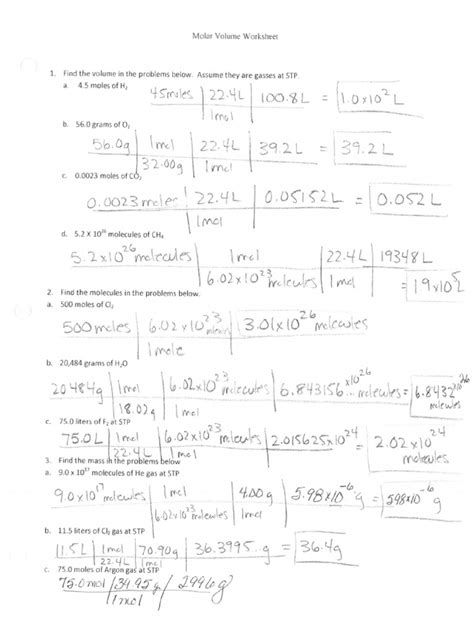 Molar Volume Worksheet
1. Find the volume in the problems below. Assume they are gasses at STP.
a. 4.5 moles of H2
4.5moles | 22.4L | 100.8L = 1.0x10^2 L
1mol
b. 56.0 grams of O2
56.0g | 1mol | 22.4L | 39.2L = 39.2L
32.00g | 1mol
c. 0.0023 moles of CO2
0.0023 moles | 22.4L | 0.05152L = 0.052L
1mol
d. 5.2 X 10^26 molecules of CH4
5.2x10^26 molecules | 1mol | 22.4L | 19348L
6.02x10^23 molecules | 1mol = 1.9x10^5 L
2. Find the molecules in the problems below.
a. 500 moles of Cl2
500 moles | 6.02x10^23 | 3.01x10^26 molecules
1mole
b. 20,484 grams of H2O
20484g | 1mol | 6.02x10^23 molecules | 6.843156...x10^26 molecules = 6.8432x10^26 molecules
18.02g | 1mol
c. 75.0 liters of F2 at STP
75.0L | 1mol | 6.02x10^23 molecules | 2.015625x10^24 = 2.02x10^24 molecules
22.4L | 1mol
3. Find the mass in the problems below
a. 9.0 x 10^17 molecules of He gas at STP
9.0x10^17 molecules | 1mol | 4.00g | 5.98x10^-6 g = 5.98x10^-6 g
6.02x10^23 molecules | 1mol
b. 11.5 liters of Cl2 gas at STP
11.5L | 1mol | 70.90g | 36.3995...g = 36.4g
22.4L | 1mol
c. 75.0 moles of Argon gas at STP
75.0mol | 39.95g | 2996g
1mol